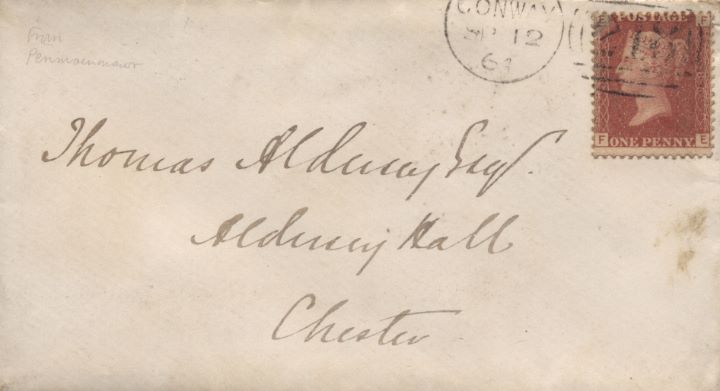 from
Penmaenmawr
CONWAY
SP 12
E F
POSTAGE
F E
ONE PENNY
Thomas Aldersey Esqr.
Aldersey Hall
Chester